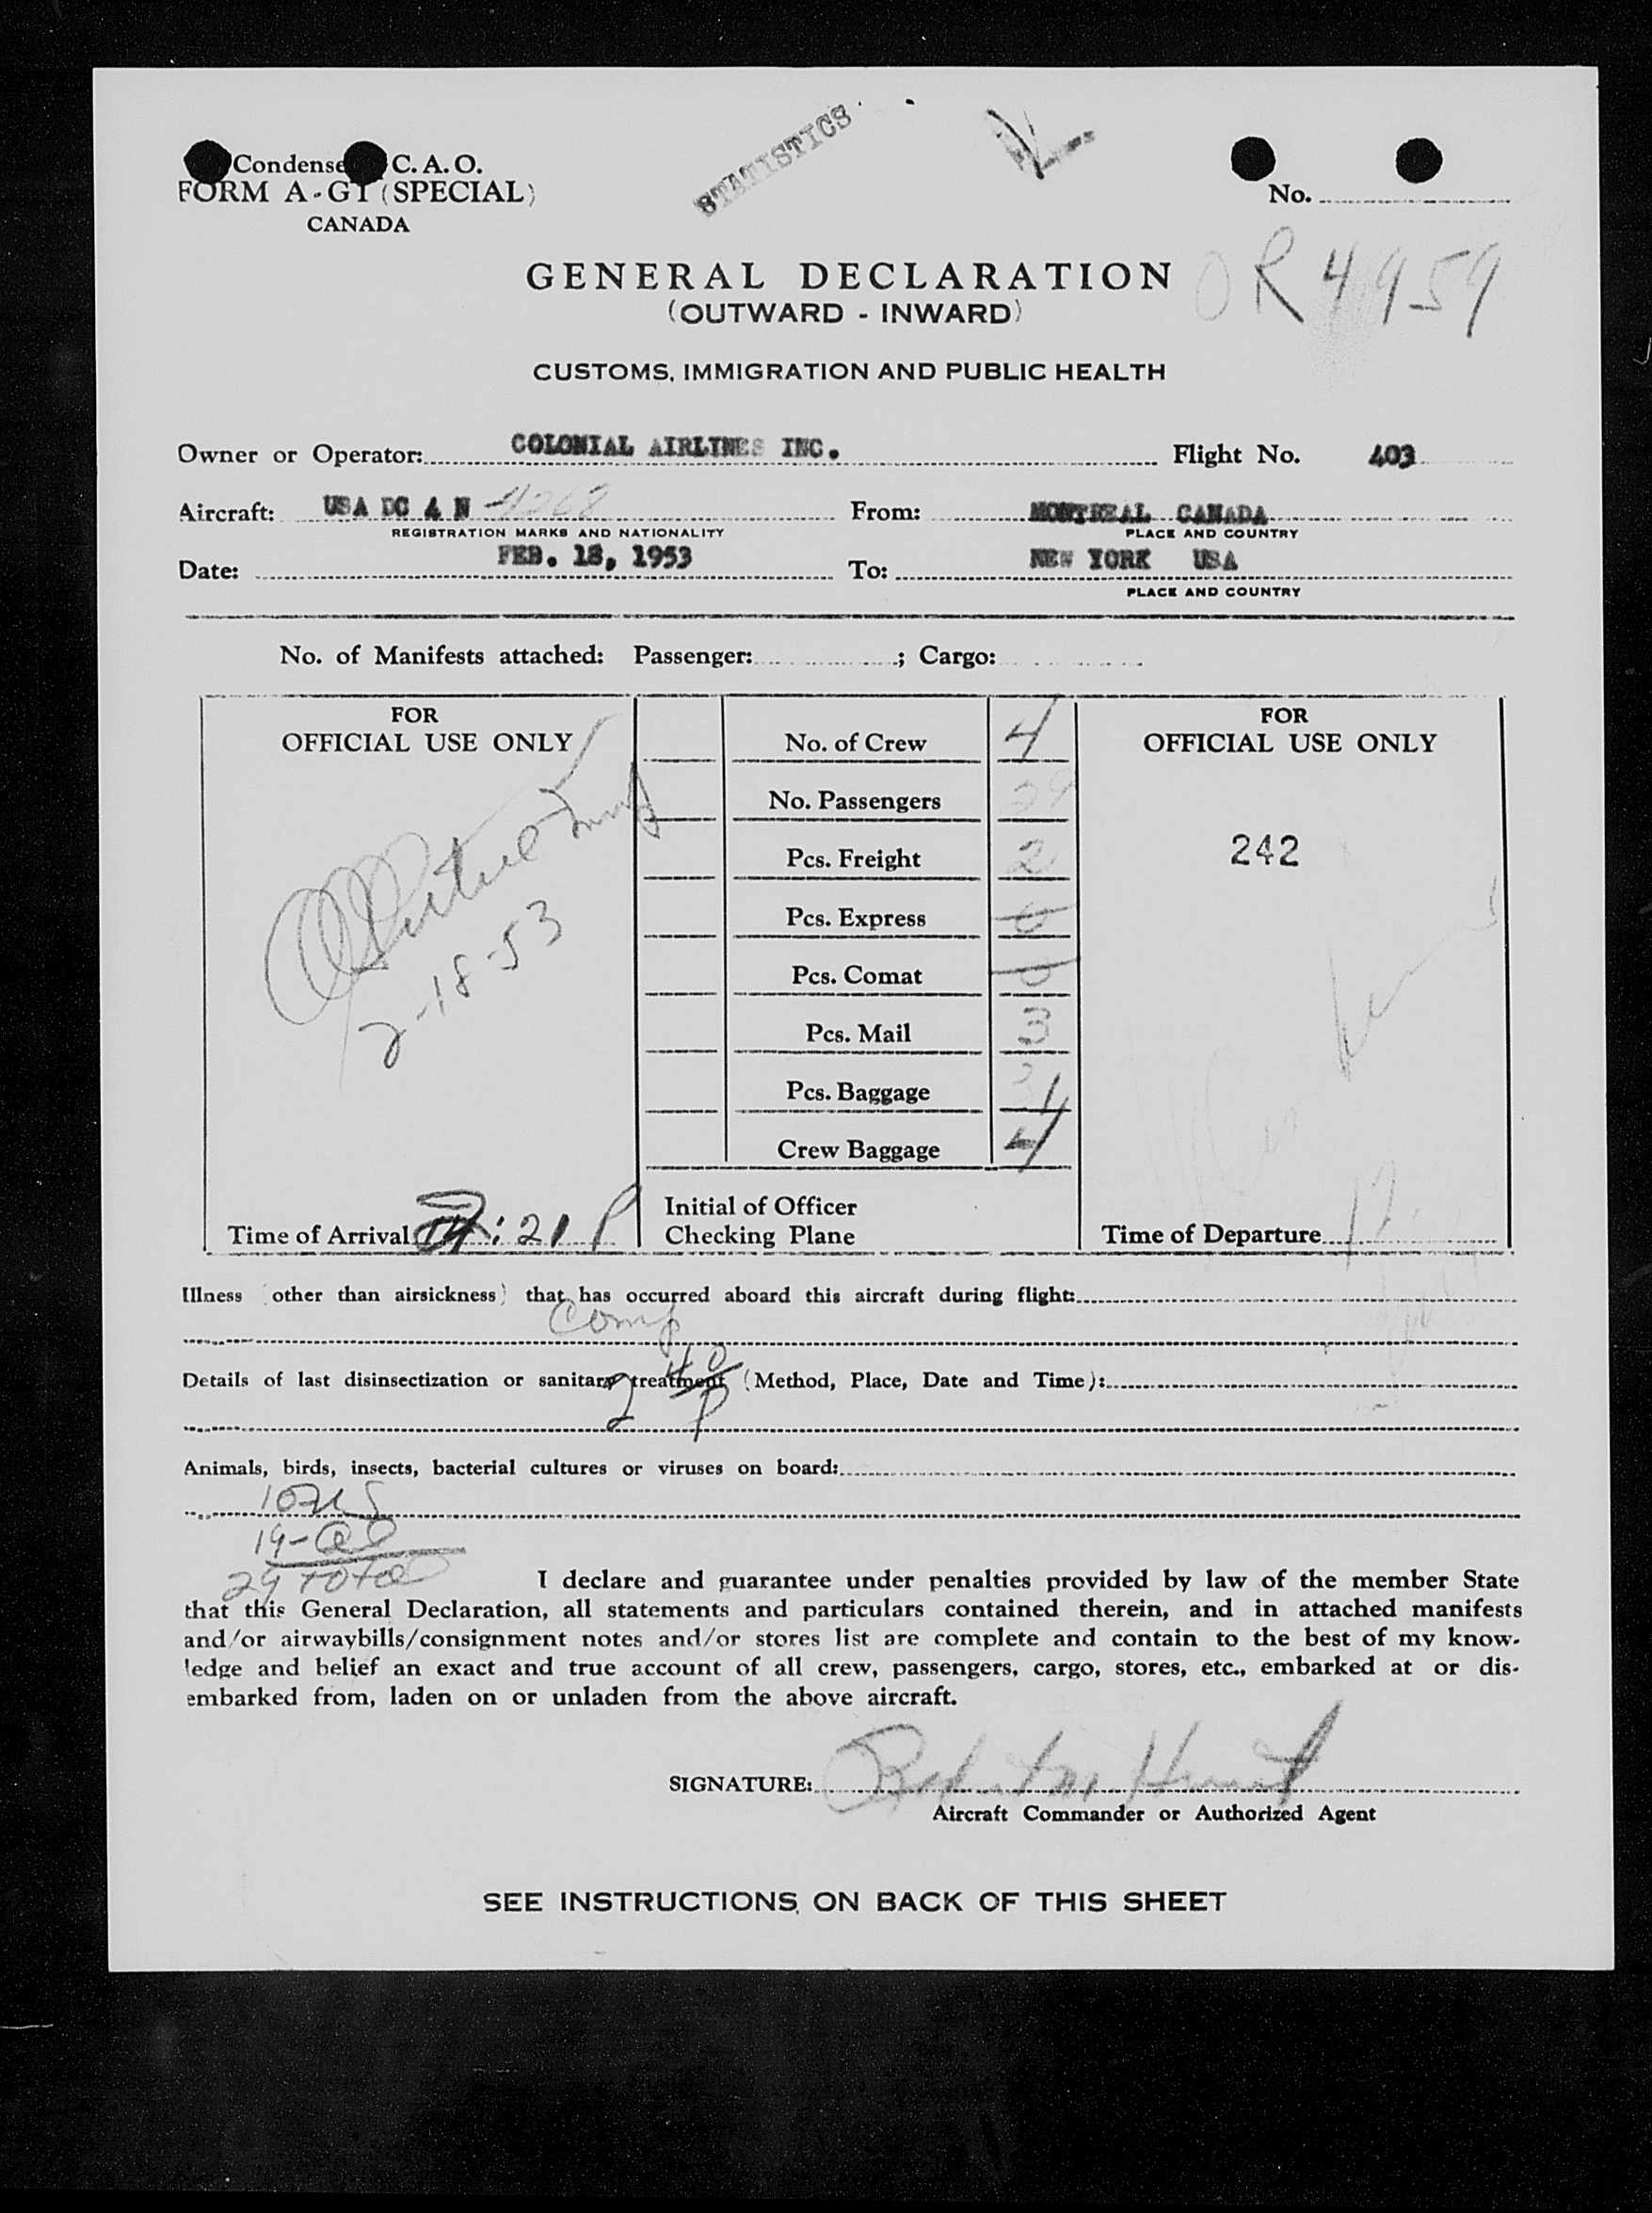 Condensed C.A.O.
FORM A-G1 (SPECIAL)
CANADA
STATISTICS
No.
OR 4959
GENERAL DECLARATION
(OUTWARD - INWARD)
CUSTOMS, IMMIGRATION AND PUBLIC HEALTH
Owner or Operator: COLONIAL AIRLINES INC. Flight No. 403
Aircraft: USA DC 4 N From: MONTREAL CANADA
REGISTRATION MARKS AND NATIONALITY PLACE AND COUNTRY
Date: FEB. 18, 1953 To: NEW YORK USA
PLACE AND COUNTRY
No. of Manifests attached: Passenger: ; Cargo:
FOR
OFFICIAL USE ONLY
2-18-53
Time of Arrival :21 P
No. of Crew 4
No. Passengers 29
Pcs. Freight 2
Pcs. Express 0
Pcs. Comat 0
Pcs. Mail 3
Pcs. Baggage
Crew Baggage 4
Initial of Officer
Checking Plane
FOR
OFFICIAL USE ONLY
242
Time of Departure
Illness (other than airsickness) that has occurred aboard this aircraft during flight:
Comp
Details of last disinsectization or sanitary treatment (Method, Place, Date and Time):
2 40 P
Animals, birds, insects, bacterial cultures or viruses on board:
10 US
19-
29 Total
I declare and guarantee under penalties provided by law of the member State
that this General Declaration, all statements and particulars contained therein, and in attached manifests
and/or airwaybills/consignment notes and/or stores list are complete and contain to the best of my know-
ledge and belief an exact and true account of all crew, passengers, cargo, stores, etc., embarked at or dis-
embarked from, laden on or unladen from the above aircraft.
SIGNATURE:
Aircraft Commander or Authorized Agent
SEE INSTRUCTIONS ON BACK OF THIS SHEET